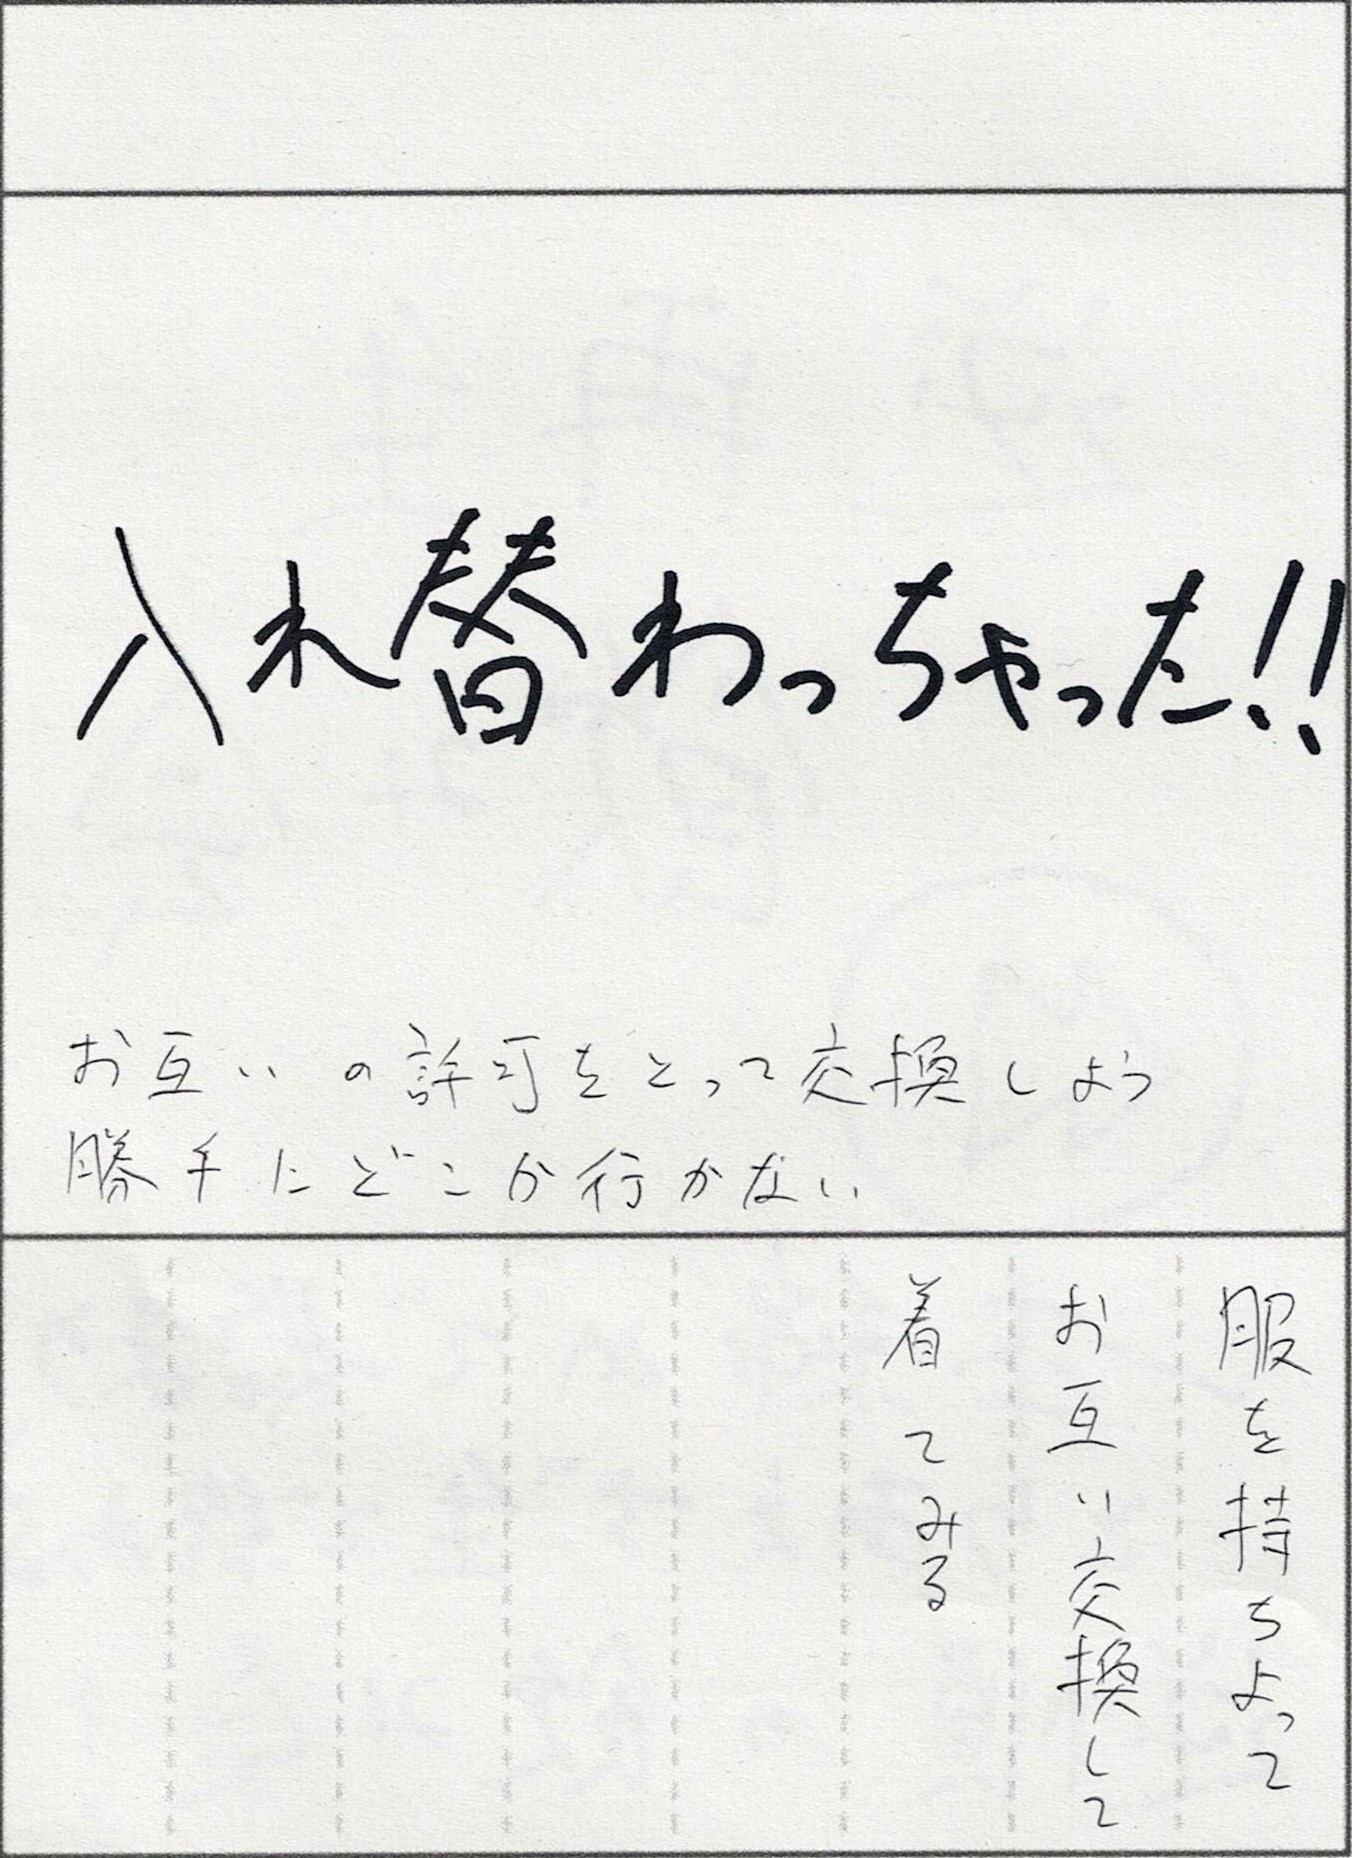 入れ替わっちゃった!!
お互いの許可をとって交換しよう
勝手にどこか行かない
服を持ちよって
お互い交換して
着てみる